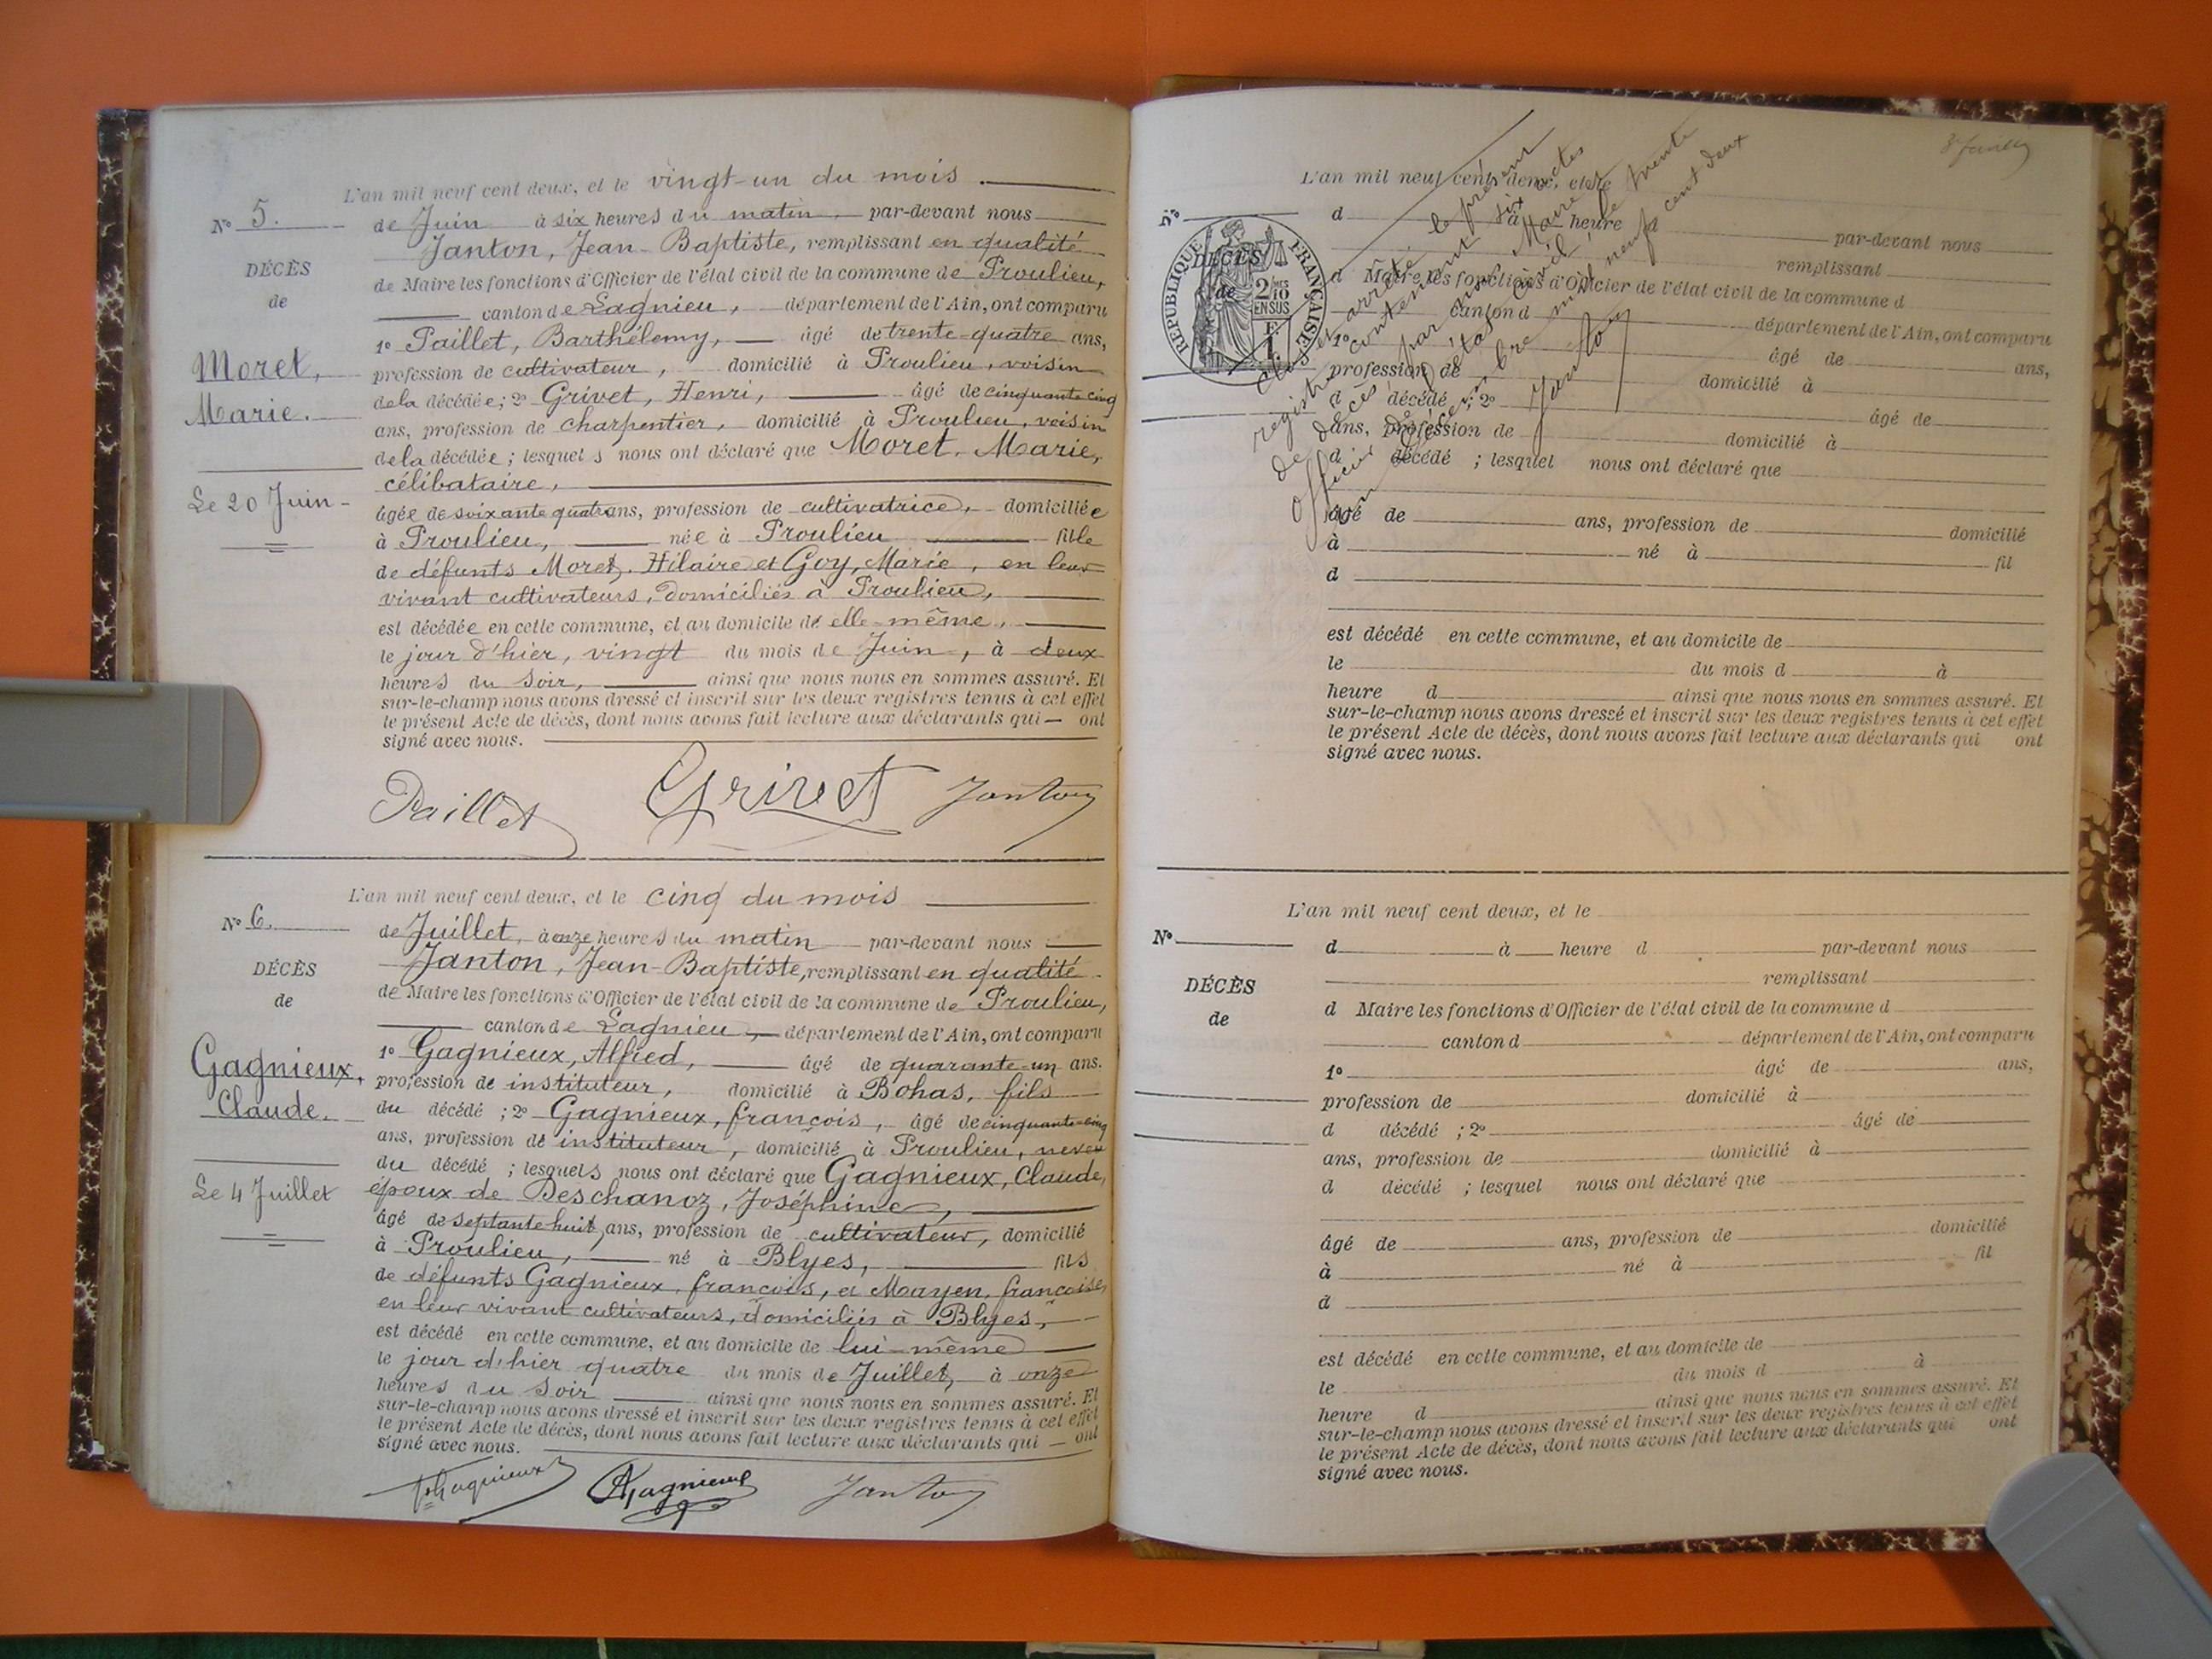 L'an mil neuf cent deux, et le vingt-un du mois
N° 5.
de Juin à six heures du matin par-devant nous
Janton, Jean-Baptiste, remplissant en qualité
DÉCÈS
de Maire les fonctions d'Officier de l'état civil de la commune de Proulieu,
de
canton de Lagnieu, département de l'Ain, ont comparu
1° Paillet, Barthélemy, âgé de trente-quatre ans,
Moret,
profession de cultivateur, domicilié à Proulieu, voisin
de la décédée; 2° Grivet, Henri, âgé de cinquante cinq
Marie.
ans, profession de charpentier, domicilié à Proulieu, voisin
de la décédée; lesquels nous ont déclaré que Moret, Marie,
célibataire,
Le 20 Juin
âgée de soixante quatre ans, profession de cultivatrice, domiciliée
à Proulieu, née à Proulieu fille
de défunts Moret, Hilaire et Goy, Marie, en leur
vivant cultivateurs, domiciliés à Proulieu,
est décédée en cette commune, et au domicile de elle-même,
le jour d'hier, vingt du mois de Juin, à deux
heures du soir, ainsi que nous nous en sommes assuré. Et
sur-le-champ nous avons dressé et inscrit sur les deux registres tenus à cet effet
le présent Acte de décès, dont nous avons fait lecture aux déclarants qui ont
signé avec nous.
Paillet Grivet Janton
L'an mil neuf cent deux, et le cinq du mois
N° 6.
de Juillet, à onze heures du matin par-devant nous
Janton, Jean-Baptiste, remplissant en qualité
DÉCÈS
de Maire les fonctions d'Officier de l'état civil de la commune de Proulieu,
de
canton de Lagnieu, département de l'Ain, ont comparu
1° Gagnieux, Alfred, âgé de quarante-un ans.
Gagnieux,
profession de instituteur, domicilié à Bohas, fils
Claude.
du décédé; 2° Gagnieux, françois, âgé de cinquante-cinq
ans, profession de instituteur, domicilié à Proulieu, neveu
du décédé; lesquels nous ont déclaré que Gagnieux, Claude,
Le 4 Juillet
époux de Deschanoz, Joséphine,
âgé de septante huit ans, profession de cultivateur, domicilié
à Proulieu, né à Blyes, fils
de défunts Gagnieux, françois, et Mayen, françoise,
en leur vivant cultivateurs, domiciliés à Blyes,
est décédé en cette commune, et au domicile de lui-même
le jour d'hier quatre du mois de Juillet, à onze
heures du soir ainsi que nous nous en sommes assuré. Et
sur-le-champ nous avons dressé et inscrit sur les deux registres tenus à cet effet
le présent Acte de décès, dont nous avons fait lecture aux déclarants qui ont
signé avec nous.
Gagnieux AGagnieux Janton
8e feuillet
Clos et arrêté le présent
registre contenant six actes
de décès par nous, Maire et
Officier de l'état civil, le trente
un décembre mil neuf cent deux
Janton
RÉPUBLIQUE FRANÇAISE
2/10
EN SUS
L'an mil neuf cent deux, et le
N°
d à heure d par-devant nous
DÉCÈS
remplissant
de
d Maire les fonctions d'Officier de l'état civil de la commune d
canton d département de l'Ain, ont comparu
1° âgé de ans,
profession de domicilié à
d décédé ; 2° âgé de
ans, profession de domicilié à
d décédé ; lesquel nous ont déclaré que
âgé de ans, profession de domicilié
à né à fil
d
est décédé en cette commune, et au domicile de
le du mois d à
heure d ainsi que nous nous en sommes assuré. Et
sur-le-champ nous avons dressé et inscrit sur les deux registres tenus à cet effet
le présent Acte de décès, dont nous avons fait lecture aux déclarants qui ont
signé avec nous.
L'an mil neuf cent deux, et le
N°
d à heure d par-devant nous
DÉCÈS
remplissant
de
d Maire les fonctions d'Officier de l'état civil de la commune d
canton d département de l'Ain, ont comparu
1° âgé de ans,
profession de domicilié à
d décédé ; 2° âgé de
ans, profession de domicilié à
d décédé ; lesquel nous ont déclaré que
âgé de ans, profession de domicilié
à né à fil
d
est décédé en cette commune, et au domicile de
le du mois d à
heure d ainsi que nous nous en sommes assuré. Et
sur-le-champ nous avons dressé et inscrit sur les deux registres tenus à cet effet
le présent Acte de décès, dont nous avons fait lecture aux déclarants qui ont
signé avec nous.